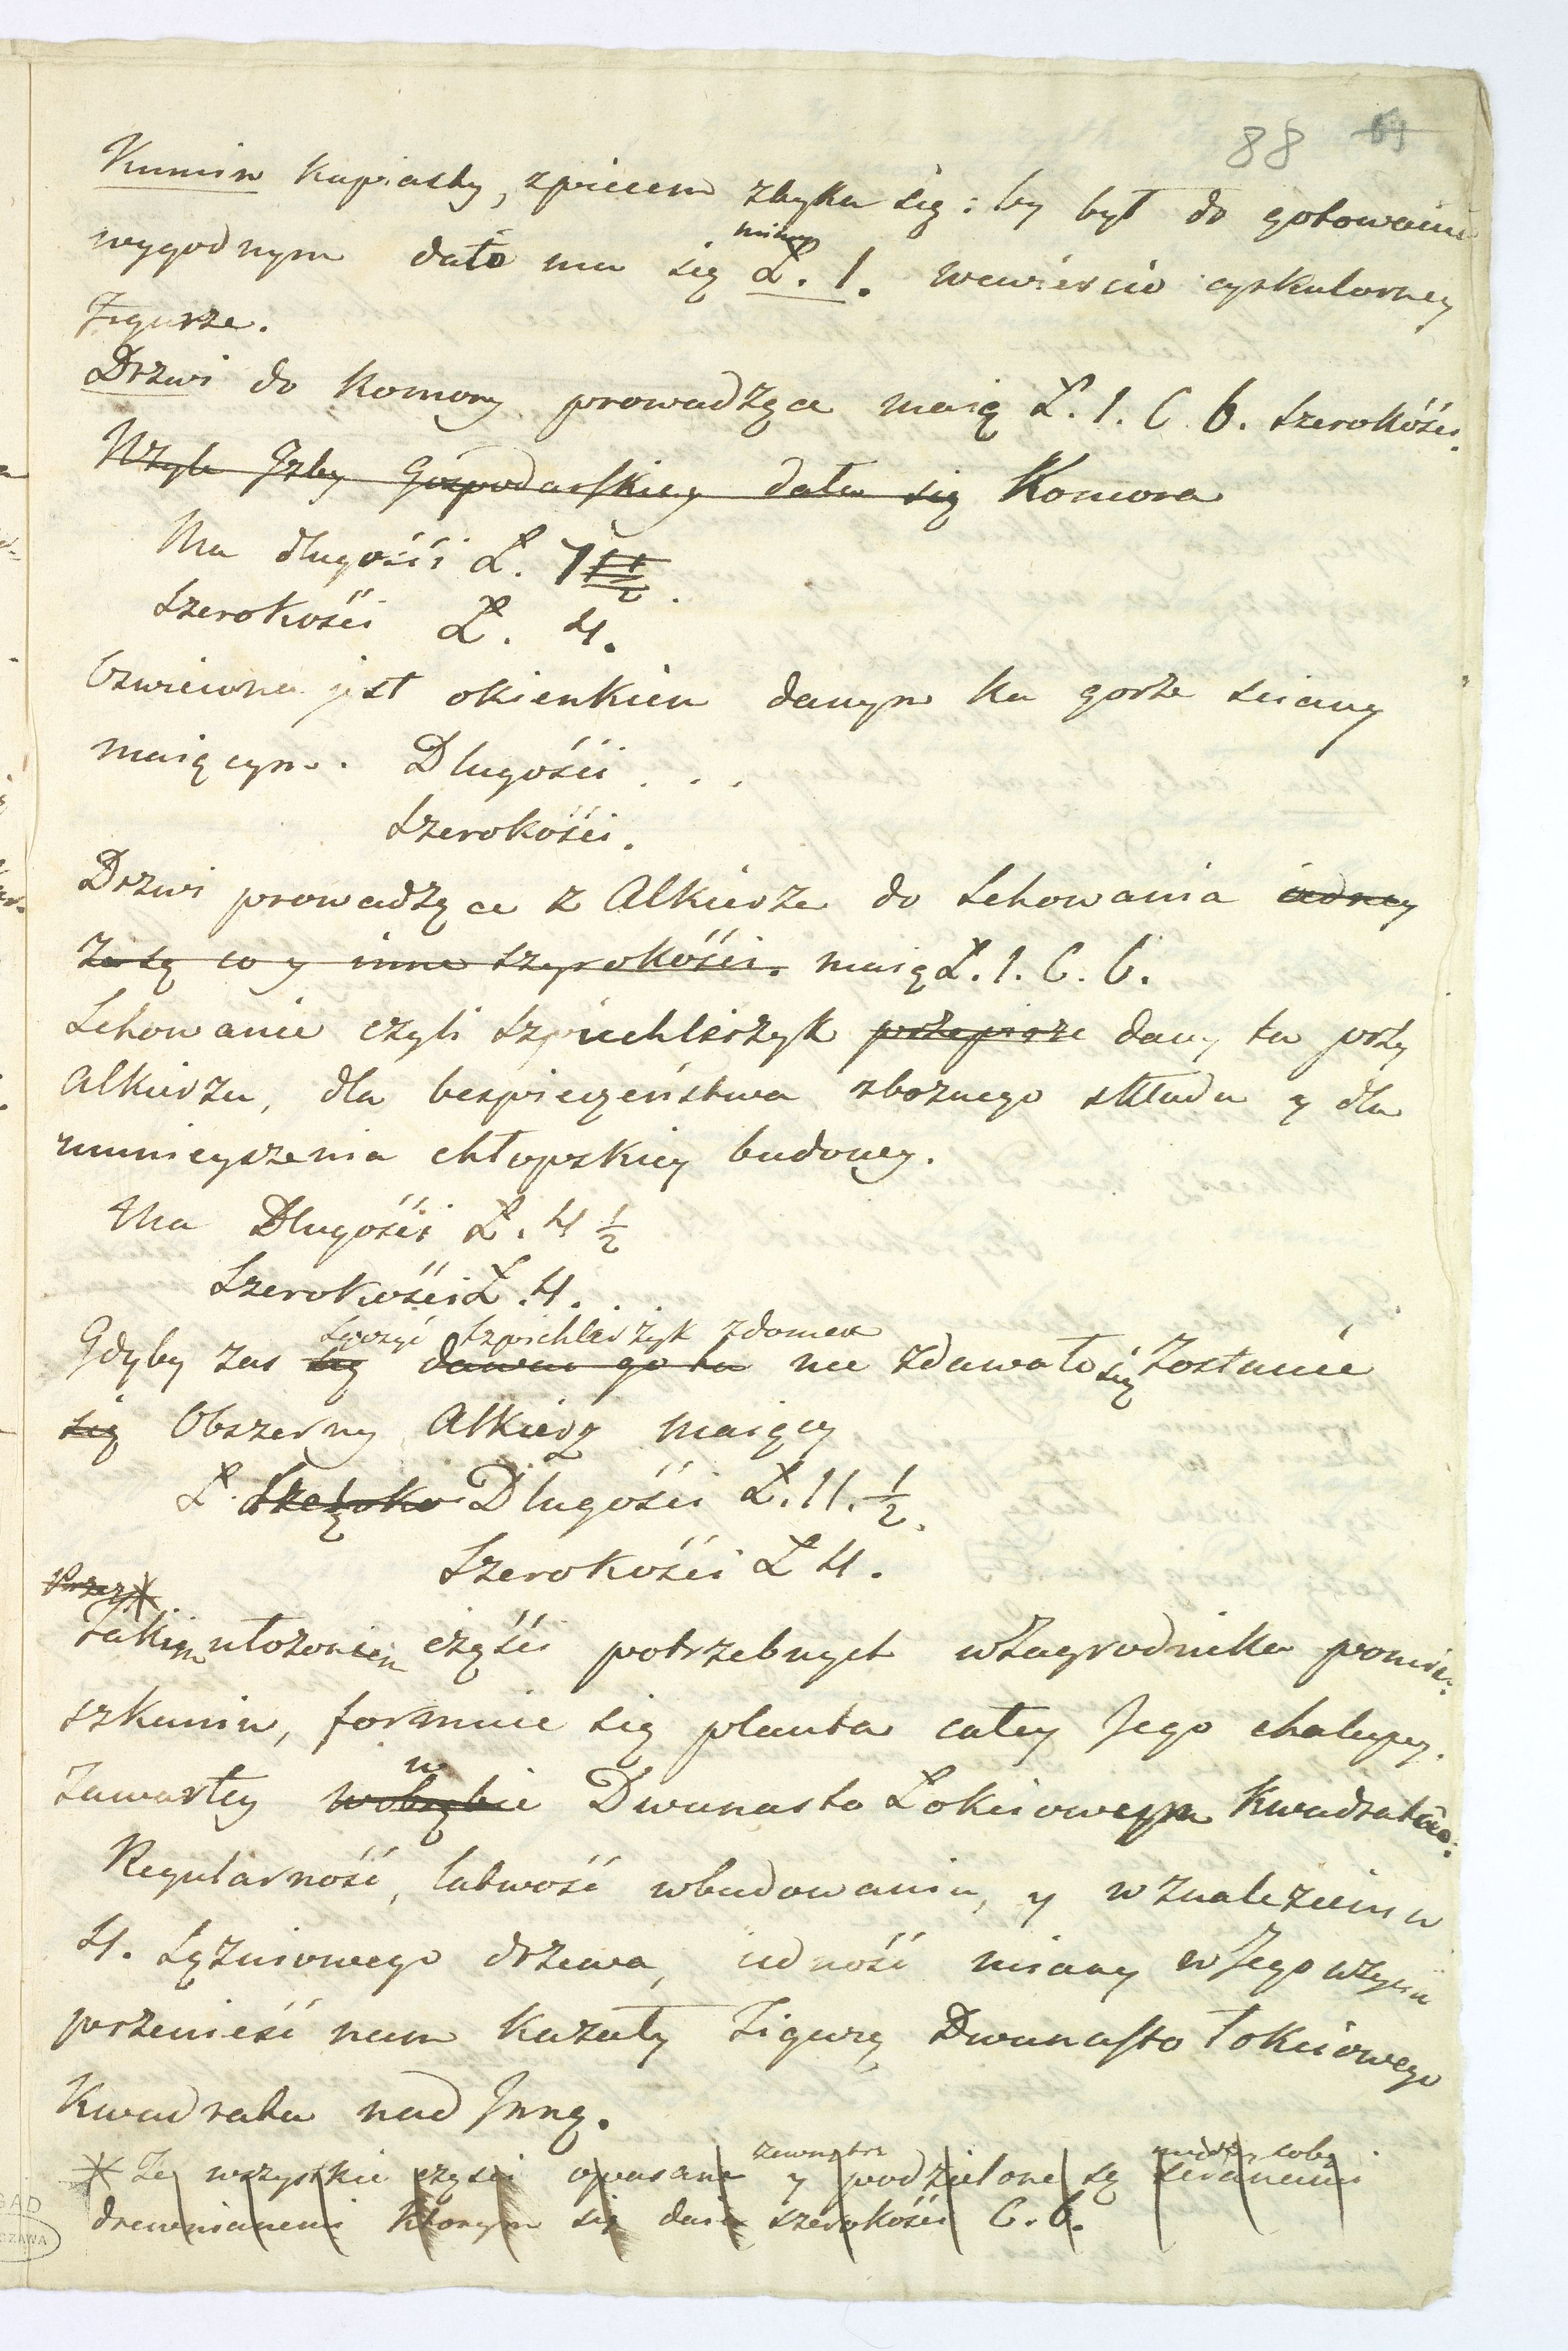 88 69
Kumin kapiasty, zpiecem styka się: by był do gotowania
wygodnym dało ma się Ł. 1. wewierście cyrkularney
miary
Figurze.
Drzwi do Komory prowadzące maią Ł. 1. C. 6. szerokości.
Wtyle Izby Gospodarskiey dała się Komora
Ma długości Ł. 7
Szerokości Ł. 4.
Oświecona jest okienkiem danym ku gorze sciany
maiącym. Długości . . .
Szerokości.
Drzwi prowadzące z Alkierza do Schowania iedney
że są co y inne szyrokości. maią Ł. 1. C. 6.
Schowanie czyli Szpichlerzyk dany tu przy
Alkierzu, dla bespieczeństwa zbożnego składu y dla
zmnieyszenia chłopskiey budowy.
Ma Długości Ł. 4 1/2
Szerokości Ł. 4.
Łączyć Szpichlerzyk z domem
Gdyby zas się dawać go tu nie zdawało się Zostanie
się Obszerny Alkierz maiący
Ł. Szeroko Długości Ł. 11. 1/2.
Szerokości Ł 4.
Przez
Takim ułożeniem części potrzebnych wZagrodnika pomie-
szkaniu, formuie się planta całey Jego chalupy.
w
zawartey wobrębie Dwunasto Łokciowym Kwadracie:
Regularność, łatwość wbudowaniu, y w Znalezieniu
4. Sążniowego drzewa, iedność miary w Jego wzięciu
przenieść nam kazały Figurę Dwunasto łokciowego
Kwadratu nad Inną.
zewnątrz między sobą
Te wszystkie części opasane y podzielone są scianami
drewnianemi ktorym się daie szerokości C. 6.